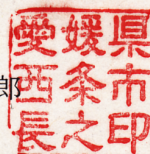 愛媛県
西条市
長之印
郎